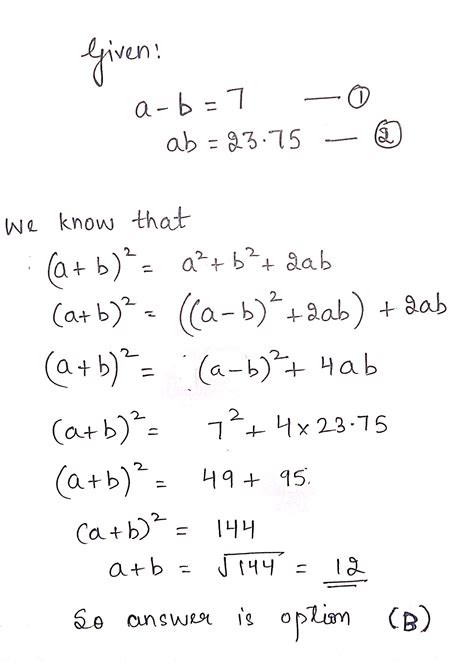 Given:
a - b = 7 — ①
ab = 23.75 — ②
We know that
(a + b)² = a² + b² + 2ab
(a+b)² = ((a-b)² + 2ab) + 2ab
(a+b)² = (a-b)² + 4ab
(a+b)² = 7² + 4 × 23.75
(a+b)² = 49 + 95.
(a+b)² = 144
a+b = √144 = 12
So answer is option (B)